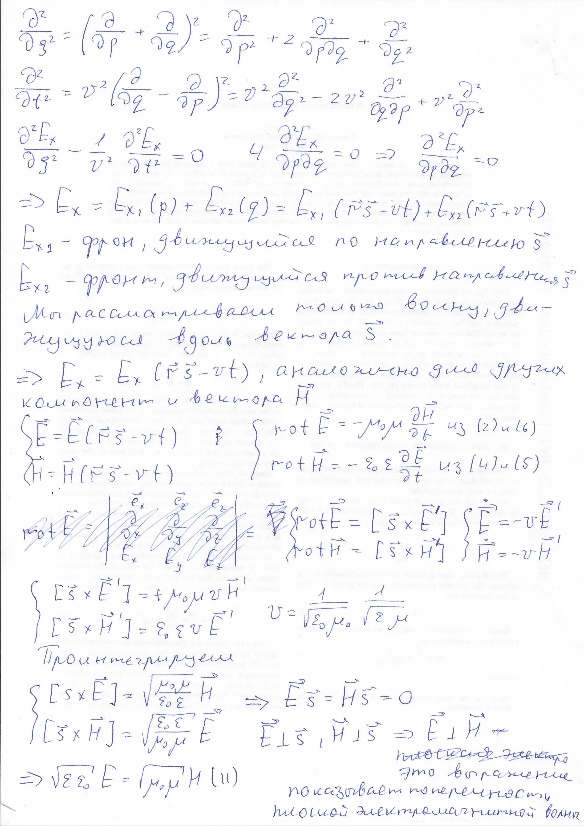 ∂²/∂ξ² = (∂/∂p + ∂/∂q)² = ∂²/∂p² + 2 ∂²/∂p∂q + ∂²/∂q²
∂²/∂t² = v² (∂/∂q − ∂/∂p)² = v² ∂²/∂q² − 2v² ∂²/∂q∂p + v² ∂²/∂p²
∂²Eₓ/∂ξ² − 1/v² ∂²Eₓ/∂t² = 0   4 ∂²Eₓ/∂p∂q = 0 => ∂²Eₓ/∂p∂q = 0
=> Eₓ = Eₓ₁(p) + Eₓ₂(q) = Eₓ₁(r⃗s⃗ − vt) + Eₓ₂(r⃗s⃗ + vt)
Eₓ₁ – фрон, движущийся по направлению s⃗
Eₓ₂ – фронт, движущийся против направления s⃗
Мы рассматриваем только волну, дви-
жущуюся вдоль вектора s⃗.
=> Eₓ = Eₓ(r⃗s⃗ − vt), аналогично для других
компонент и вектора H⃗
{ E⃗ = E⃗(r⃗s⃗ − vt)   { rot E⃗ = −μ₀μ ∂H⃗/∂t из (2) и (6)
H⃗ = H⃗(r⃗s⃗ − vt)   rot H⃗ = −ε₀ε ∂E⃗/∂t из (4) и (5)
{ rot E⃗ = [s⃗ × E⃗']   { Ė⃗ = −vE⃗'
rot H⃗ = [s⃗ × H⃗']   Ḣ⃗ = −vH⃗'
{ [s⃗ × E⃗'] = +μ₀μvH⃗'   v = 1/√(ε₀μ₀) 1/√(εμ)
[s⃗ × H⃗'] = ε₀εvE⃗'
Проинтегрируем
{ [s × E⃗] = √(μ₀μ/ε₀ε) H⃗   => E⃗s⃗ = H⃗s⃗ = 0
[s⃗ × H⃗] = √(ε₀ε/μ₀μ) E⃗   E⃗⊥s⃗, H⃗⊥s⃗ => E⃗⊥H⃗ –
=> √(εε₀) E = √(μ₀μ) H (11)   это выражение
показывает поперечность
плоской электромагнитной волны